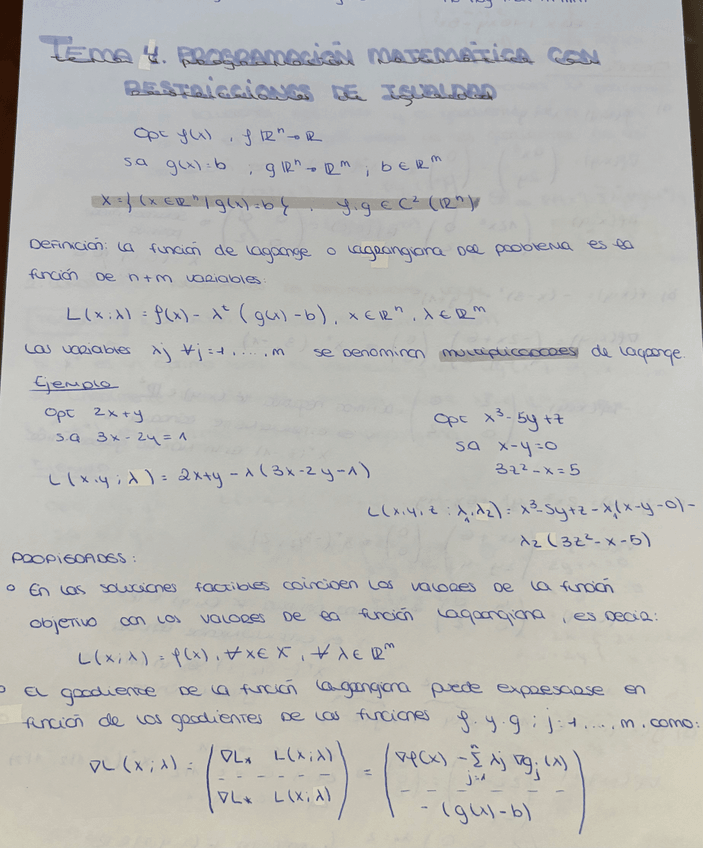 TEMA 4. PROGRAMACIÓN MATEMÁTICA CON
RESTRICCIONES DE IGUALDAD
Opt f(x), f ℝⁿ→ℝ
sa g(x)=b, g ℝⁿ→ℝᵐ; b∈ℝᵐ
X={(x∈ℝⁿ/g(x)=b}. f,g∈C²(ℝⁿ)
Definición: La función de Lagrange o Lagrangiana del problema es la
función de n+m variables:
L(x;λ)=f(x)-λᵗ(g(x)-b), x∈ℝⁿ, λ∈ℝᵐ
Las variables λj ∀j=1,...,m se denominan multiplicadores de Lagrange.
Ejemplo
Opt 2x+y
s.a 3x-2y=1
L(x,y;λ)=2x+y-λ(3x-2y-1)
Opt x³-5y+z
sa x-y=0
3z²-x=5
L(x,y,z;λ₁,λ₂)=x³-5y+z-λ₁(x-y-0)-
λ₂(3z²-x-5)
PROPIEDADES:
○ En las soluciones factibles coinciden los valores de la función
objetivo con los valores de la función Lagrangiana, es decir:
L(x;λ)=f(x), ∀x∈X, ∀λ∈ℝᵐ
○ El gradiente de la función Lagrangiana puede expresarse en
función de los gradientes de las funciones f y g; j=1,...,m, como:
∇L(x;λ)=(∇Lx L(x;λ) = (∇f(x)-Σⁿj=1 λj ∇gj(x)
∇Lx L(x;λ)) -(g(x)-b))